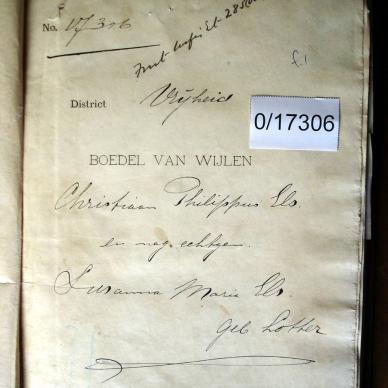 No. 17306
f.1
District Vrijheid
0/17306
BOEDEL VAN WIJLEN
Christiaan Philippus Els.
en nag. echtgen.
Susanna Maria Els.
Geb Lother